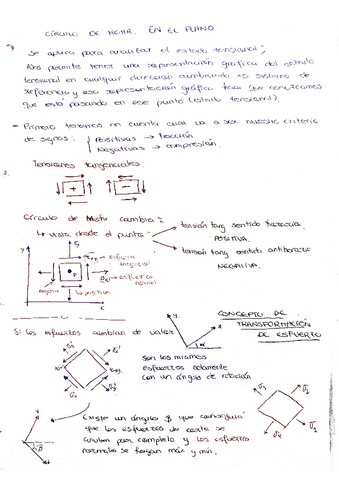 CÍRCULO DE MOHR. EN EL PLANO
Se aplica para analizar el estado tensional;
Nos permite tener una representación gráfica del estado
tensional en cualquier dirección cambiando su sistema de
referencia y esa representación gráfica hará que conozcamos
que está pasando en ese punto (estado tensional).
- Primero tenemos en cuenta cual va a ser nuestro criterio
de signos: Positivas → tracción
Negativas → compresión.
Tensiones tangenciales.
+ -
Círculo de Mohr cambia:
↳ vista desde el punto
tensión tang sentido horario
POSITIVA.
tensión tang sentido antihorario
NEGATIVA.
y
esfuerzo
tangencial
P
esfuerzo
normal
positivo
x
CONCEPTO DE
TRANSFORMACIÓN
DE ESFUERZO
Si los esfuerzos cambian de valor
y, x
α
Son los mismos
esfuerzos solamente
con un ángulo de rotación
σ1
σ2
σ1
Existe un ángulo β que conseguirá
que los esfuerzos de corte se
anulan por completo y los esfuerzos
normales se hagan máx y mín.
β